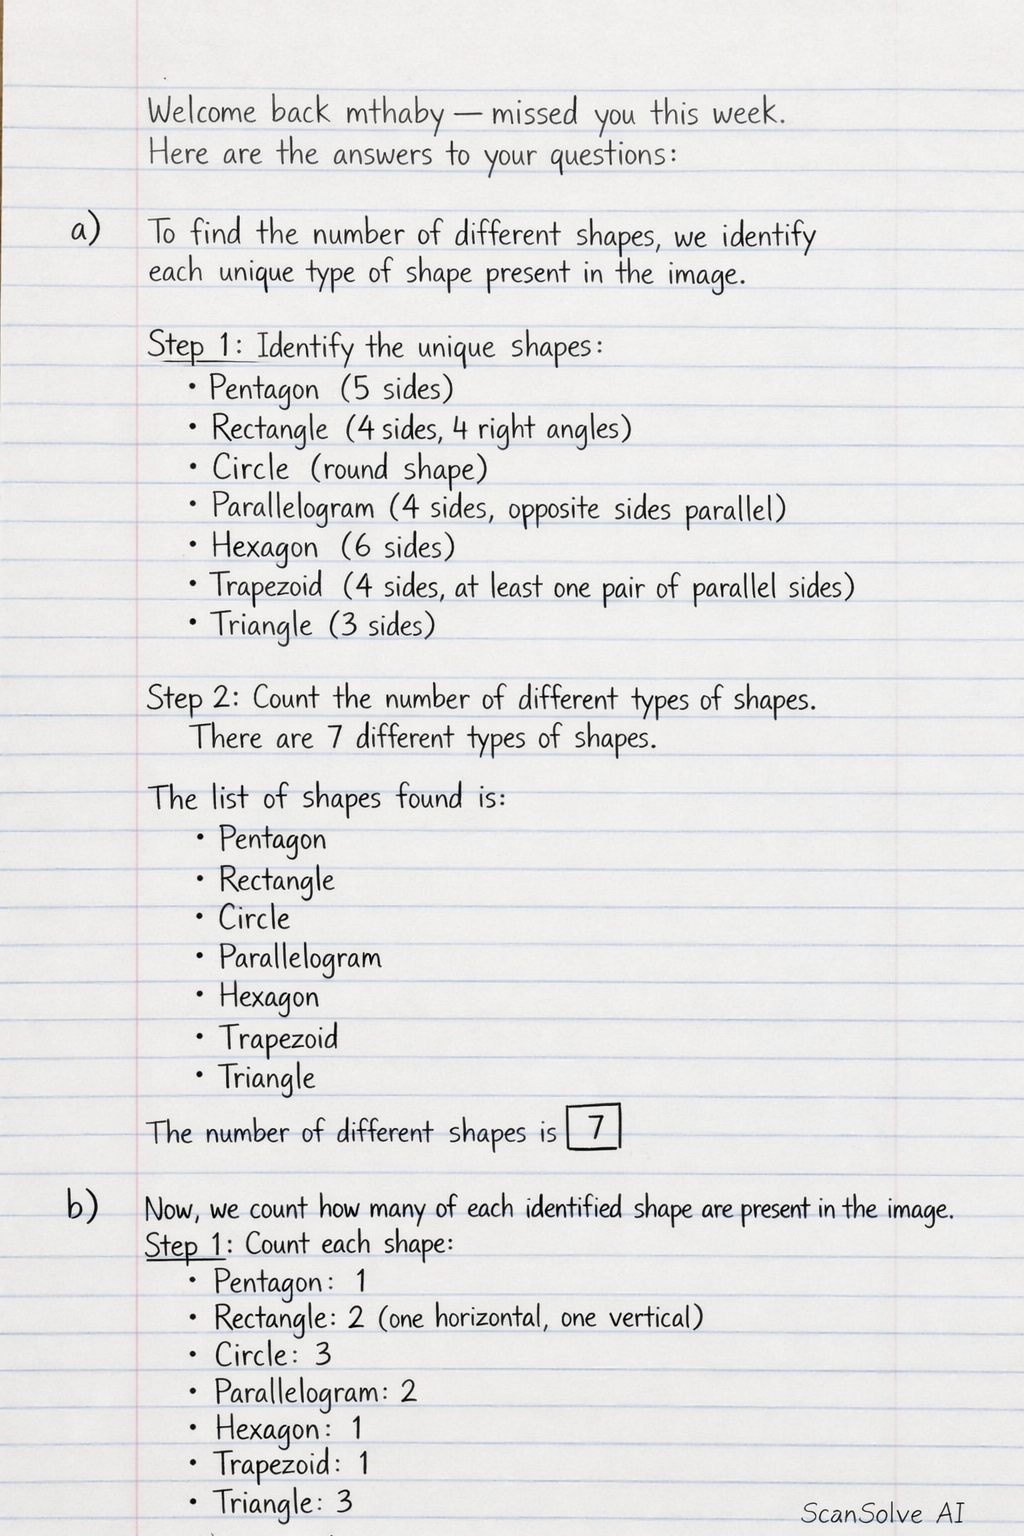 Welcome back mthaby — missed you this week.
Here are the answers to your questions:
a) To find the number of different shapes, we identify
each unique type of shape present in the image.
Step 1: Identify the unique shapes:
• Pentagon (5 sides)
• Rectangle (4 sides, 4 right angles)
• Circle (round shape)
• Parallelogram (4 sides, opposite sides parallel)
• Hexagon (6 sides)
• Trapezoid (4 sides, at least one pair of parallel sides)
• Triangle (3 sides)
Step 2: Count the number of different types of shapes.
There are 7 different types of shapes.
The list of shapes found is:
• Pentagon
• Rectangle
• Circle
• Parallelogram
• Hexagon
• Trapezoid
• Triangle
The number of different shapes is 7
b) Now, we count how many of each identified shape are present in the image.
Step 1: Count each shape:
• Pentagon: 1
• Rectangle: 2 (one horizontal, one vertical)
• Circle: 3
• Parallelogram: 2
• Hexagon: 1
• Trapezoid: 1
• Triangle: 3
ScanSolve AI